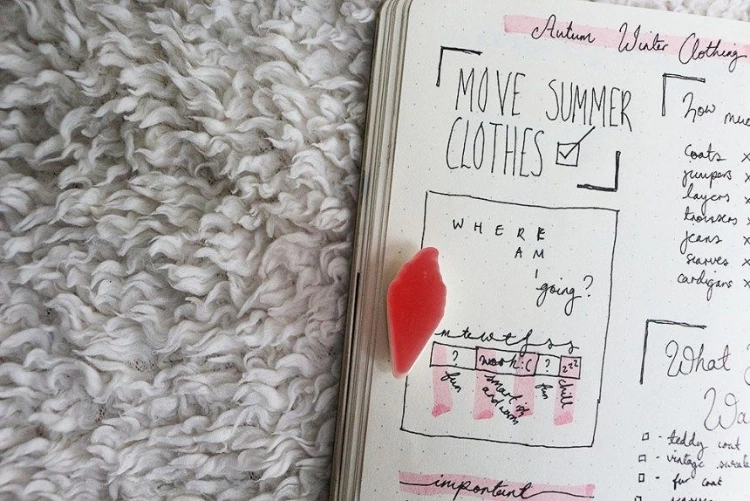 Autum Winter Clothing
MOVE SUMMER
CLOTHES
WHERE
AM
I
going?
mtwtfss
? work:( ? zzz
fun smart ish and warm fun chill
important
How muc
coats x
jumpers x
layers x
trousers x
jeans x
scarves x
cardigans x
What
Wa
- teddy coat
- vintage sweate
- fur coat